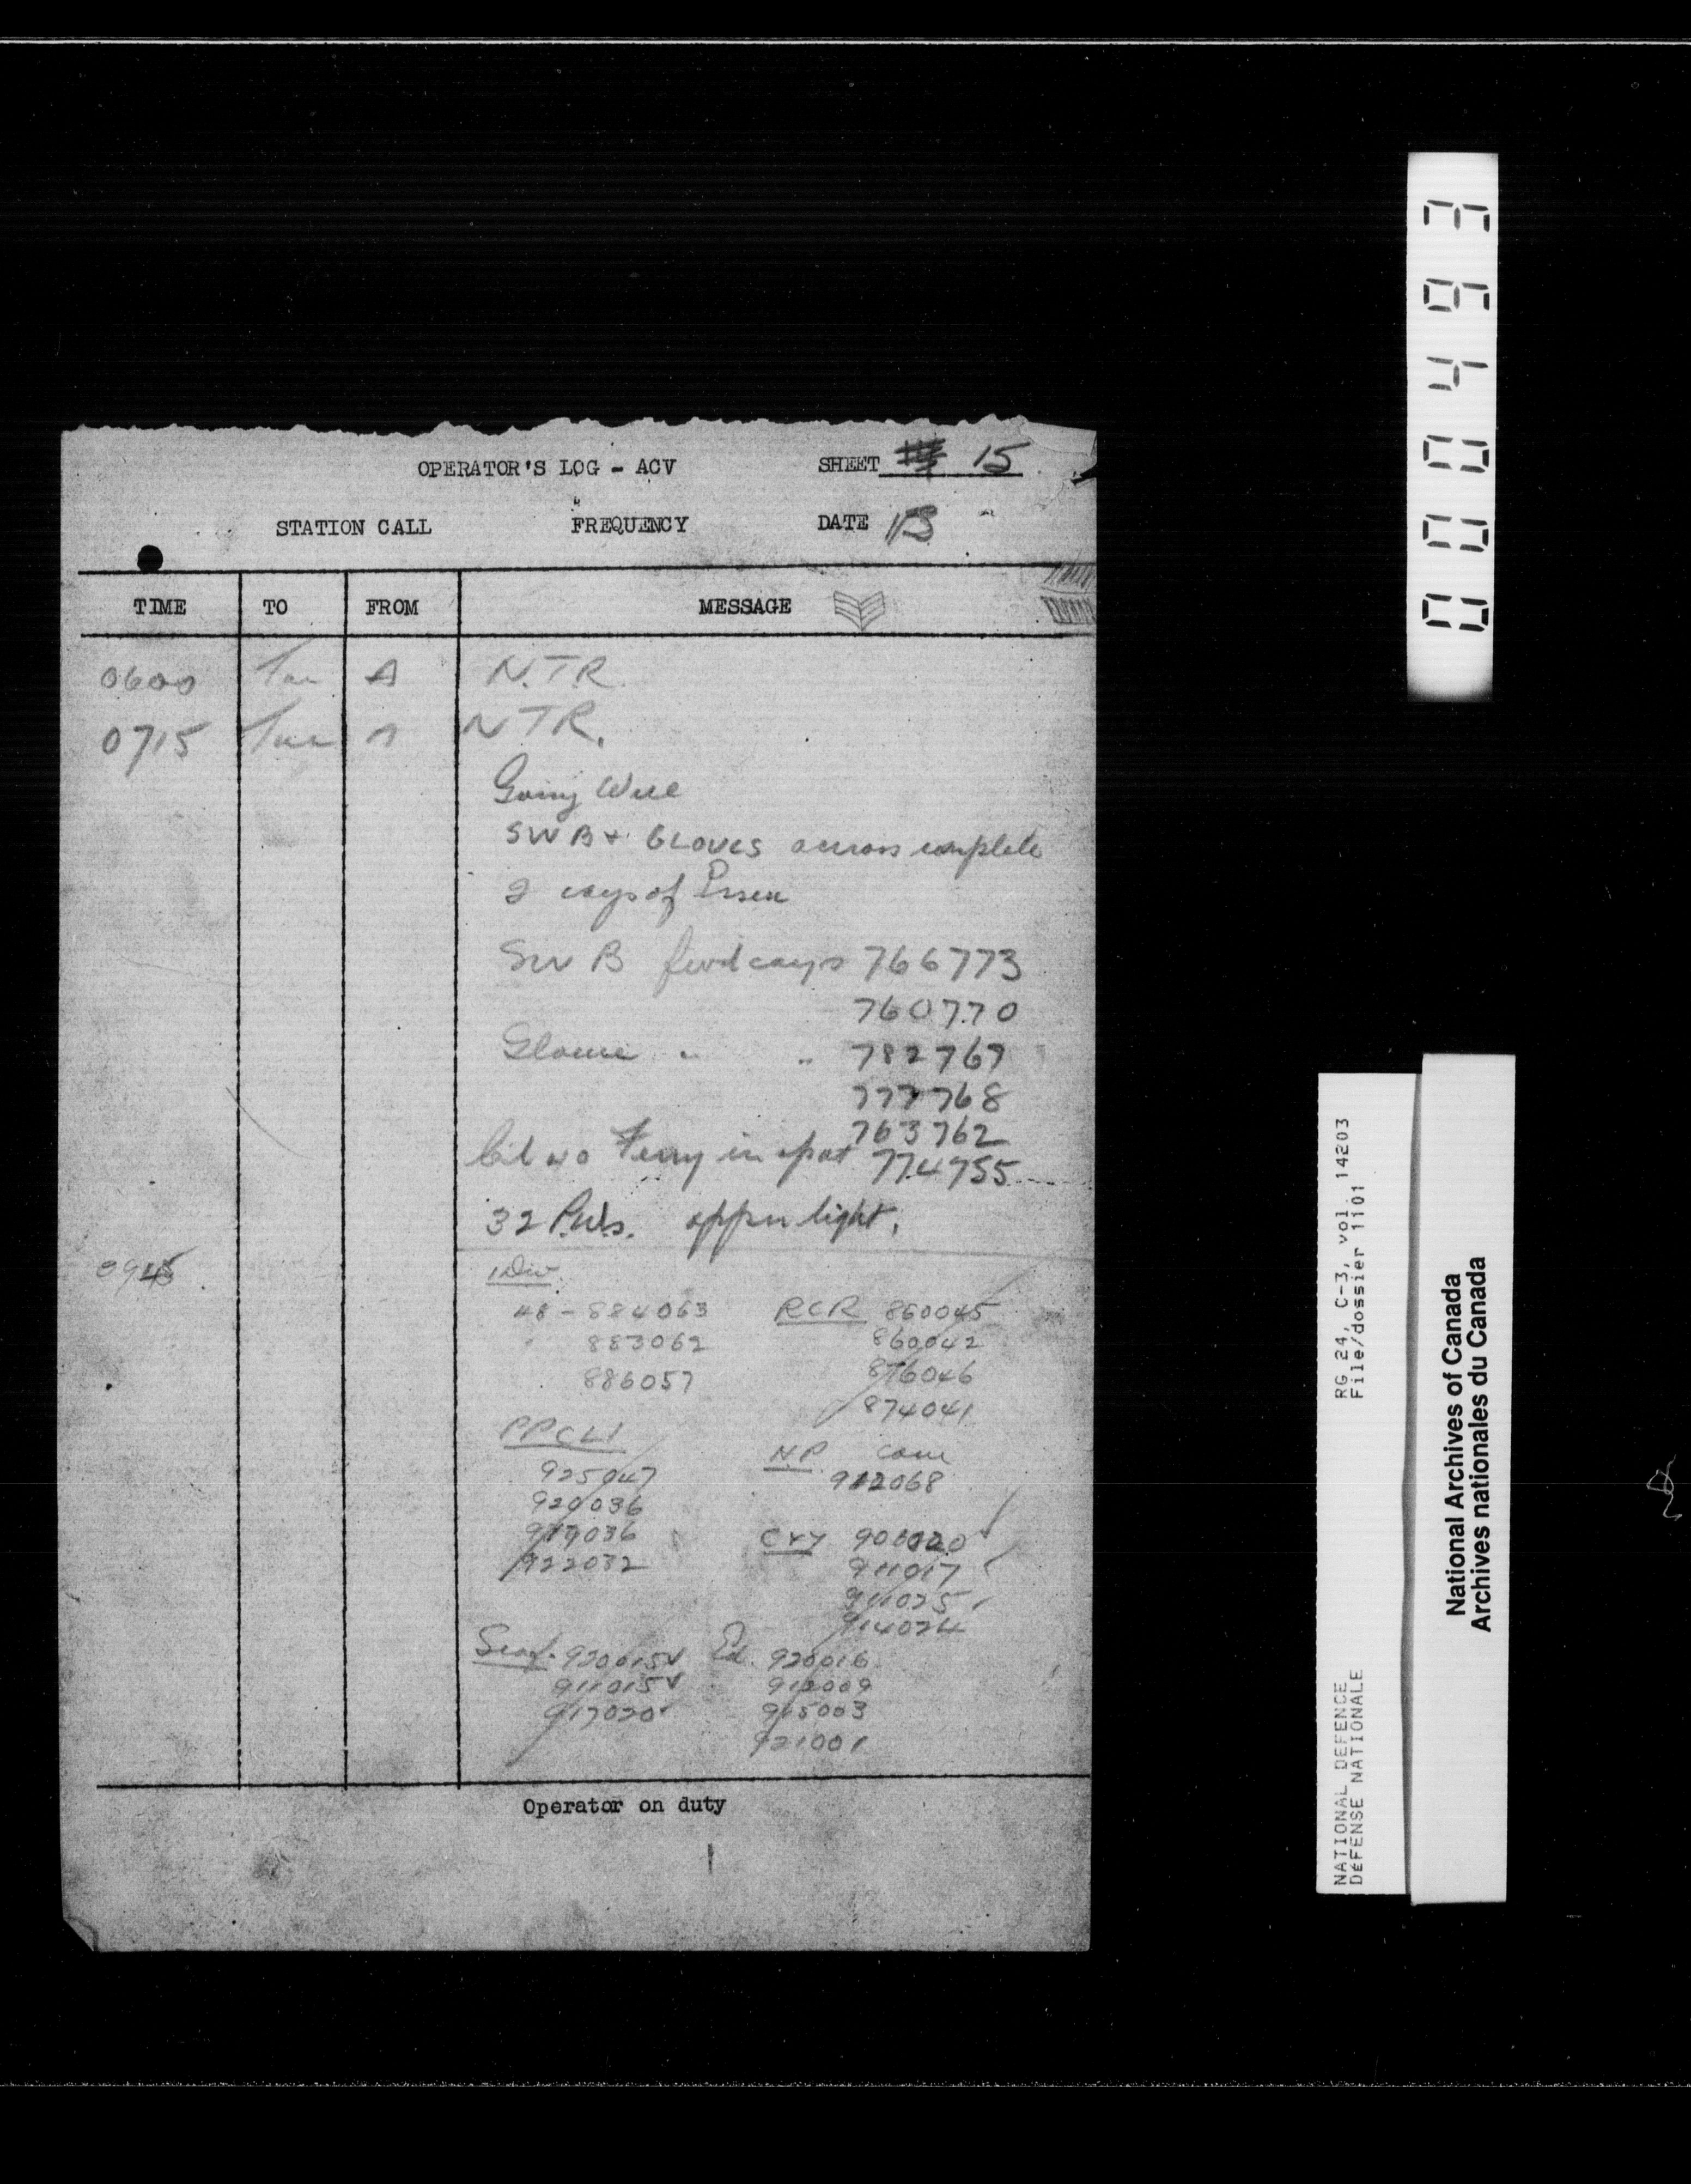 OPERATOR'S LOG - ACV SHEET 15
STATION CALL FREQUENCY DATE 13
TIME TO FROM MESSAGE
0600 A N.T.R.
0715 NTR.
Going Well
SWB + GLOVES across complete
2 coys of Essex
SWB fwd coys 766773
760770
" " 782767
777768
763762
Ferry in opat 774755
32 P.W's. oppn light.
0945 1 Div
48 - 884063 RCR 860045
" 883062 860042
886057 876046
874041
PPCLI
925047 N.P. Conc
920036 912068
919036
922032 CYY 900020
911017
911025
914024
Seaf. 920015 Ed. 920016
911015 912009
917020 915003
921001
Operator on duty
000493
RG 24, C-3, vol. 14203
File/dossier 1101
NATIONAL DEFENCE
DÉFENSE NATIONALE
National Archives of Canada
Archives nationales du Canada